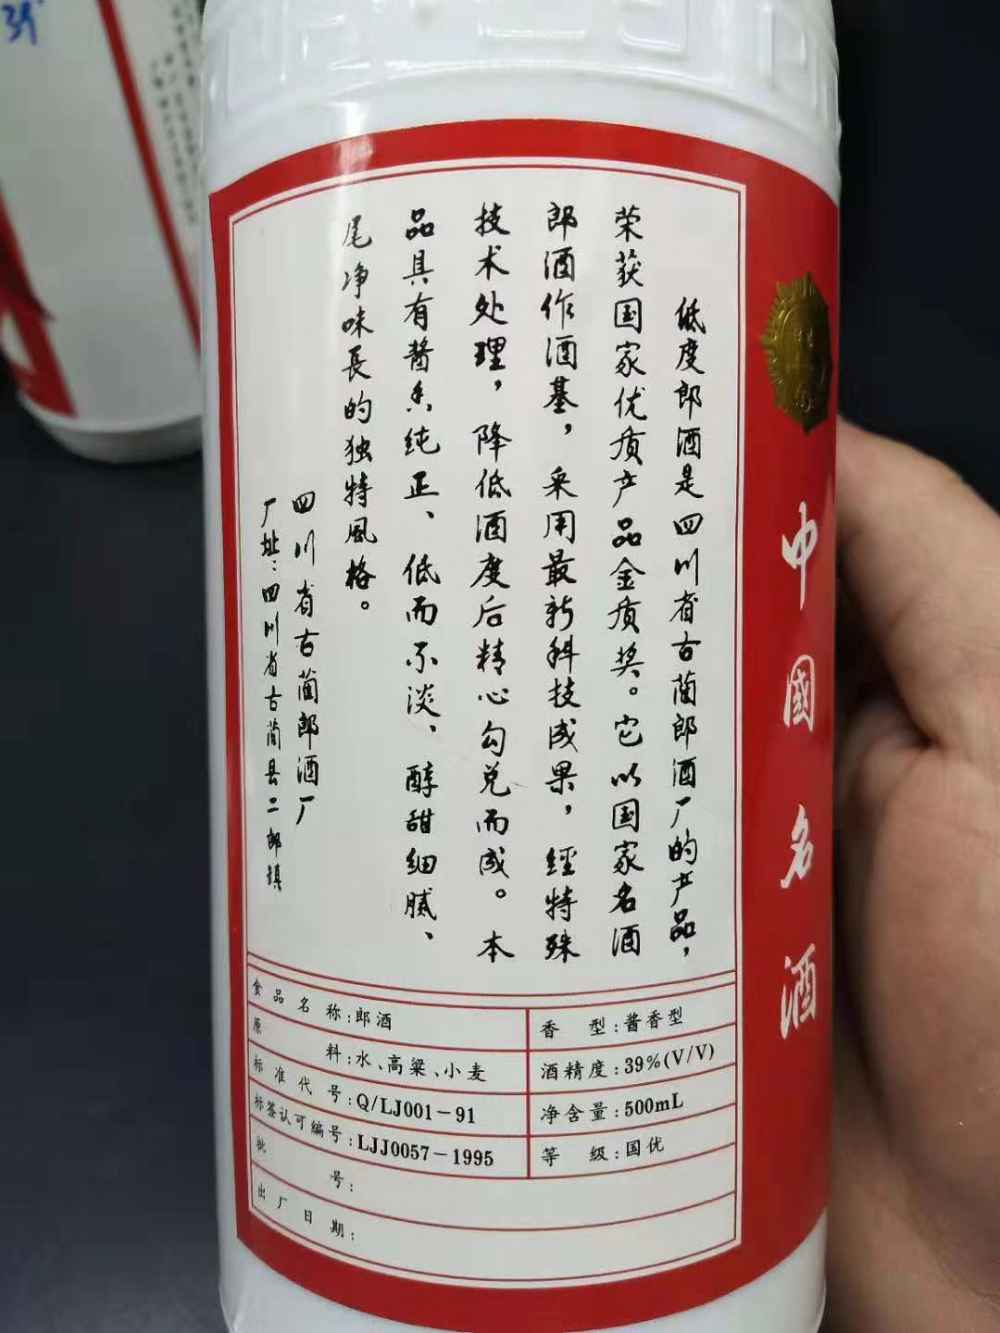 39°
中國名酒
低度郎酒是四川省古蔺郎酒厂的产品，
荣获国家优质产品金质奖。它以国家名酒
郎酒作酒基，采用最新科技成果，经特殊
技术处理，降低酒度后精心勾兑而成。本
品具有酱香纯正、低而不淡、醇甜细腻、
尾净味長的独特风格。
四川省古蔺郎酒厂
厂址：四川省古蔺县二郎镇
食品名称:郎酒
香型:酱香型
原料:水、高粱、小麦
酒精度:39%(V/V)
标准代号:Q/LJ001－91
净含量:500mL
标签认可编号:LJJ0057－1995
等级:国优
批号:
出厂日期: